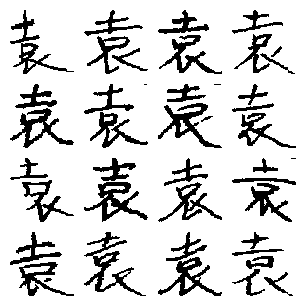 袁袁袁袁
袁袁袁袁
袁袁袁袁
袁袁袁袁